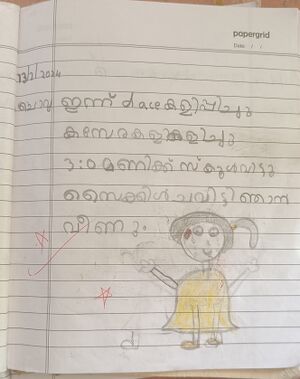 papergrid
Date: / /
13/2/2024
ചൊവ്വ ഇന്ന് dace കളിപ്പിച്ചു
കസേരകളി കളിച്ചു
3:0 മണിക്ക് സ്കൂൾവിട്ടു
സൈക്കിൾ ചവിട്ടി ഞാൻ
വീണു.